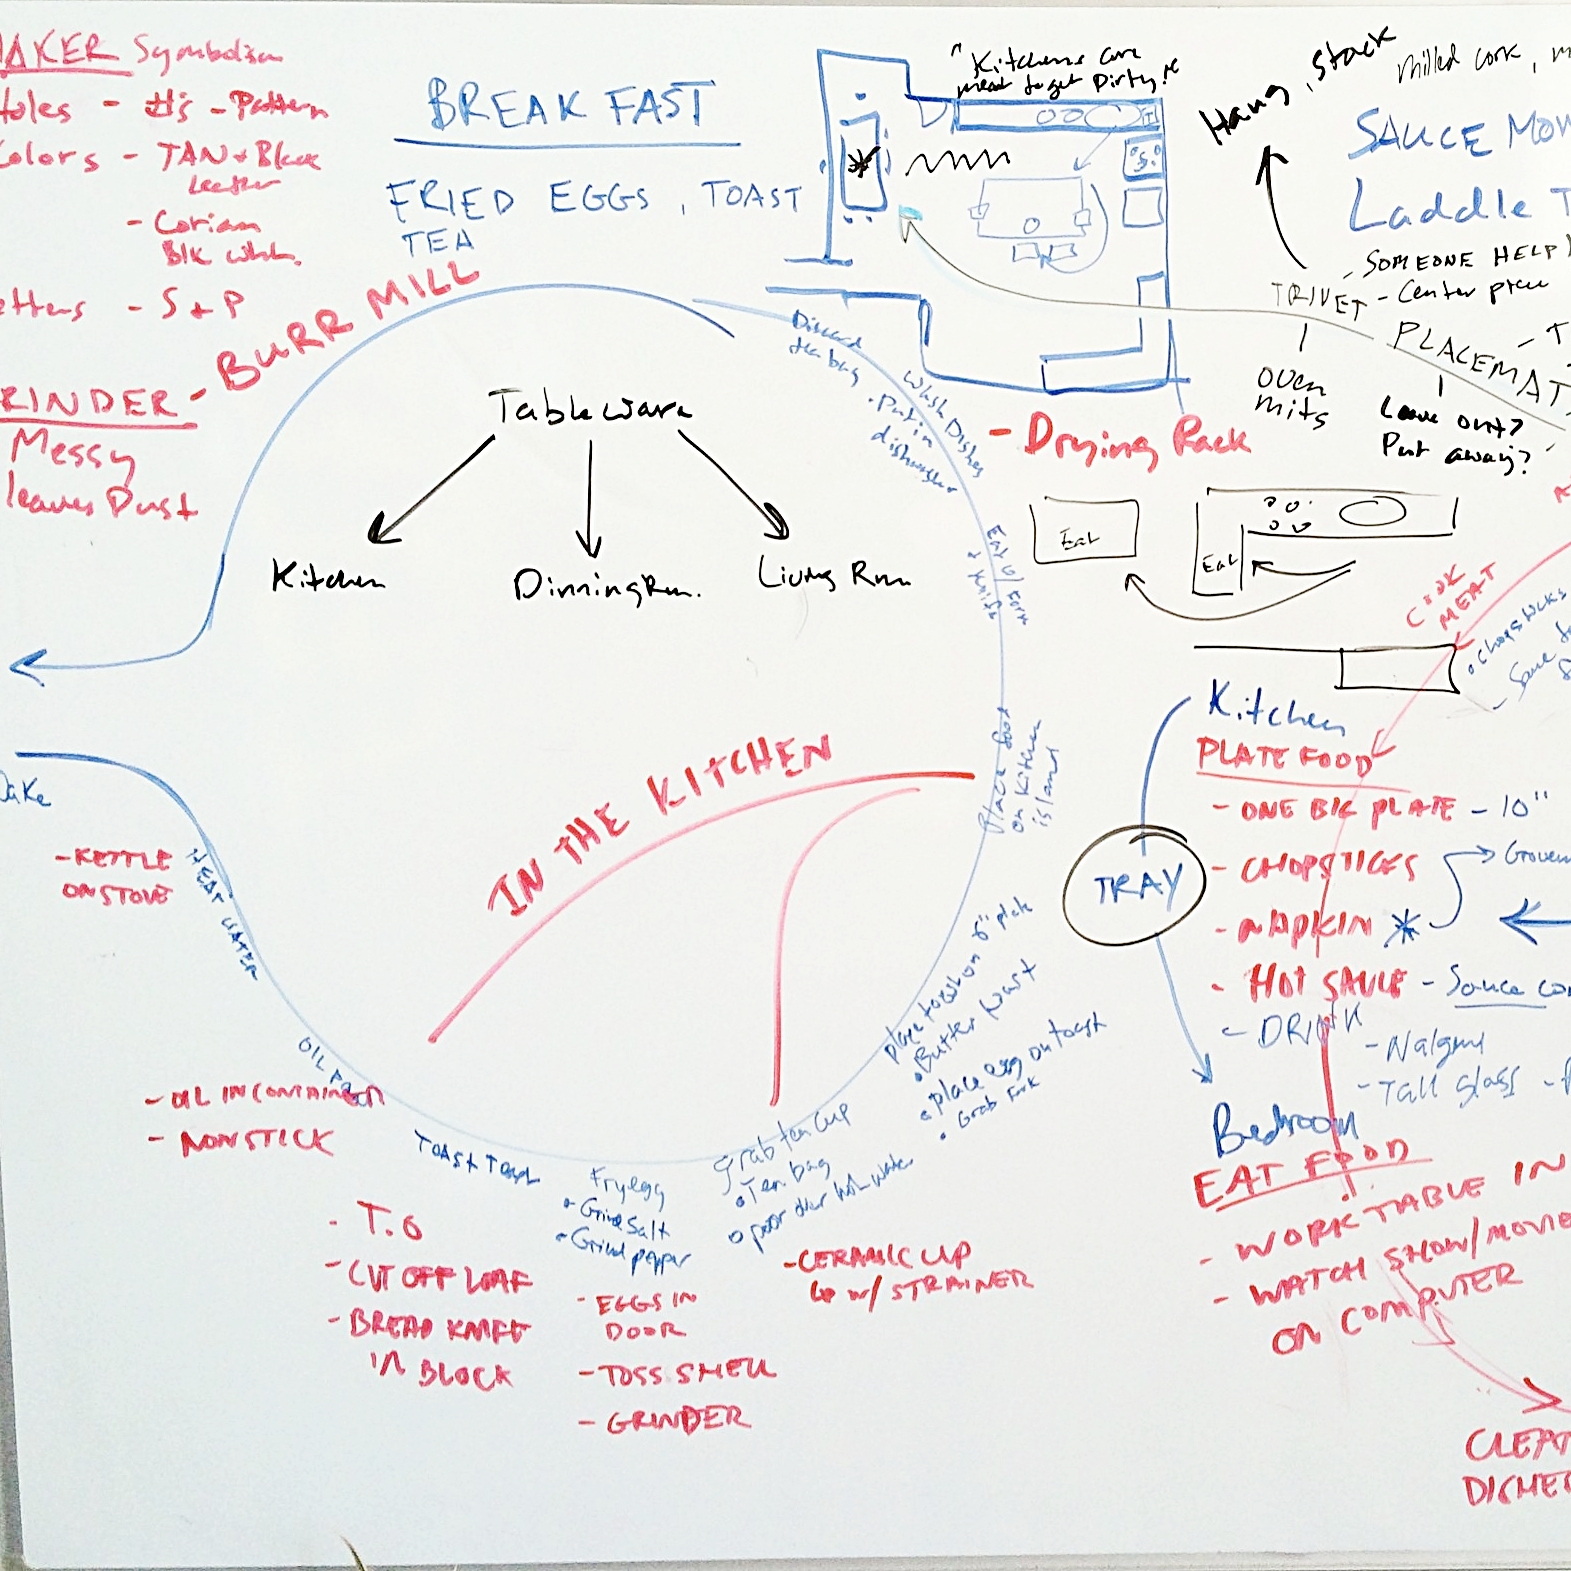 AKER Symbolism
Holes - #'s - Pattern
Colors - TAN + Black
Leather
- Corian
Blk Wht.
etters - S + P
RINDER - BURR MILL
Messy
leaves Dust
BREAK FAST
FRIED EGGS, TOAST
TEA
"Kitchens are
meant to get Dirty!"
Hang, stack
Milled cork, m
SAUCE MO
Laddle T
- SOMEONE HELP
TRIVET - Center piece
PLACEMAT
oven
mits
Leave out?
Put away?
- Drying Rack
Tableware
Kitchen
Dinning Rm.
Living Rm
Discard
tea bag
Wash Dishes
. Put in
dishwasher
Eat w/ Fork
+ Knife
Place food
on Kitchen
island
Eat
Eat
COOK
MEAT
Chopsticks
IN THE KITCHEN
- KETTLE
ON STOVE
HEAT WATER
OIL PAN
- OIL IN CONTAINER
- NONSTICK
TOAST TOAST
- T.O
- CUT OFF LOAF
- BREAD KNIFE
IN BLOCK
Fry egg
• Grind Salt
• Grind pepper
- EGGS IN
DOOR
- TOSS SHELL
- GRINDER
Grab tea cup
• Tea bag
• poor over hot water
- CERAMIC CUP
w/ STRAINER
place toast on 6" plate
• Butter toast
• place egg on toast
• Grab Fork
Kitchen
TRAY
Bedroom
PLATE FOOD
- ONE BIG PLATE - 10"
- CHOPSTICKS
- NAPKIN *
- HOT SAUCE - Sauce co
- DRINK
- Nalgene
- Tall glass -
EAT FOOD
- WORK TABLE IN
- WATCH SHOW/MOVIE
ON COMPUTER
CLEA
DISHE